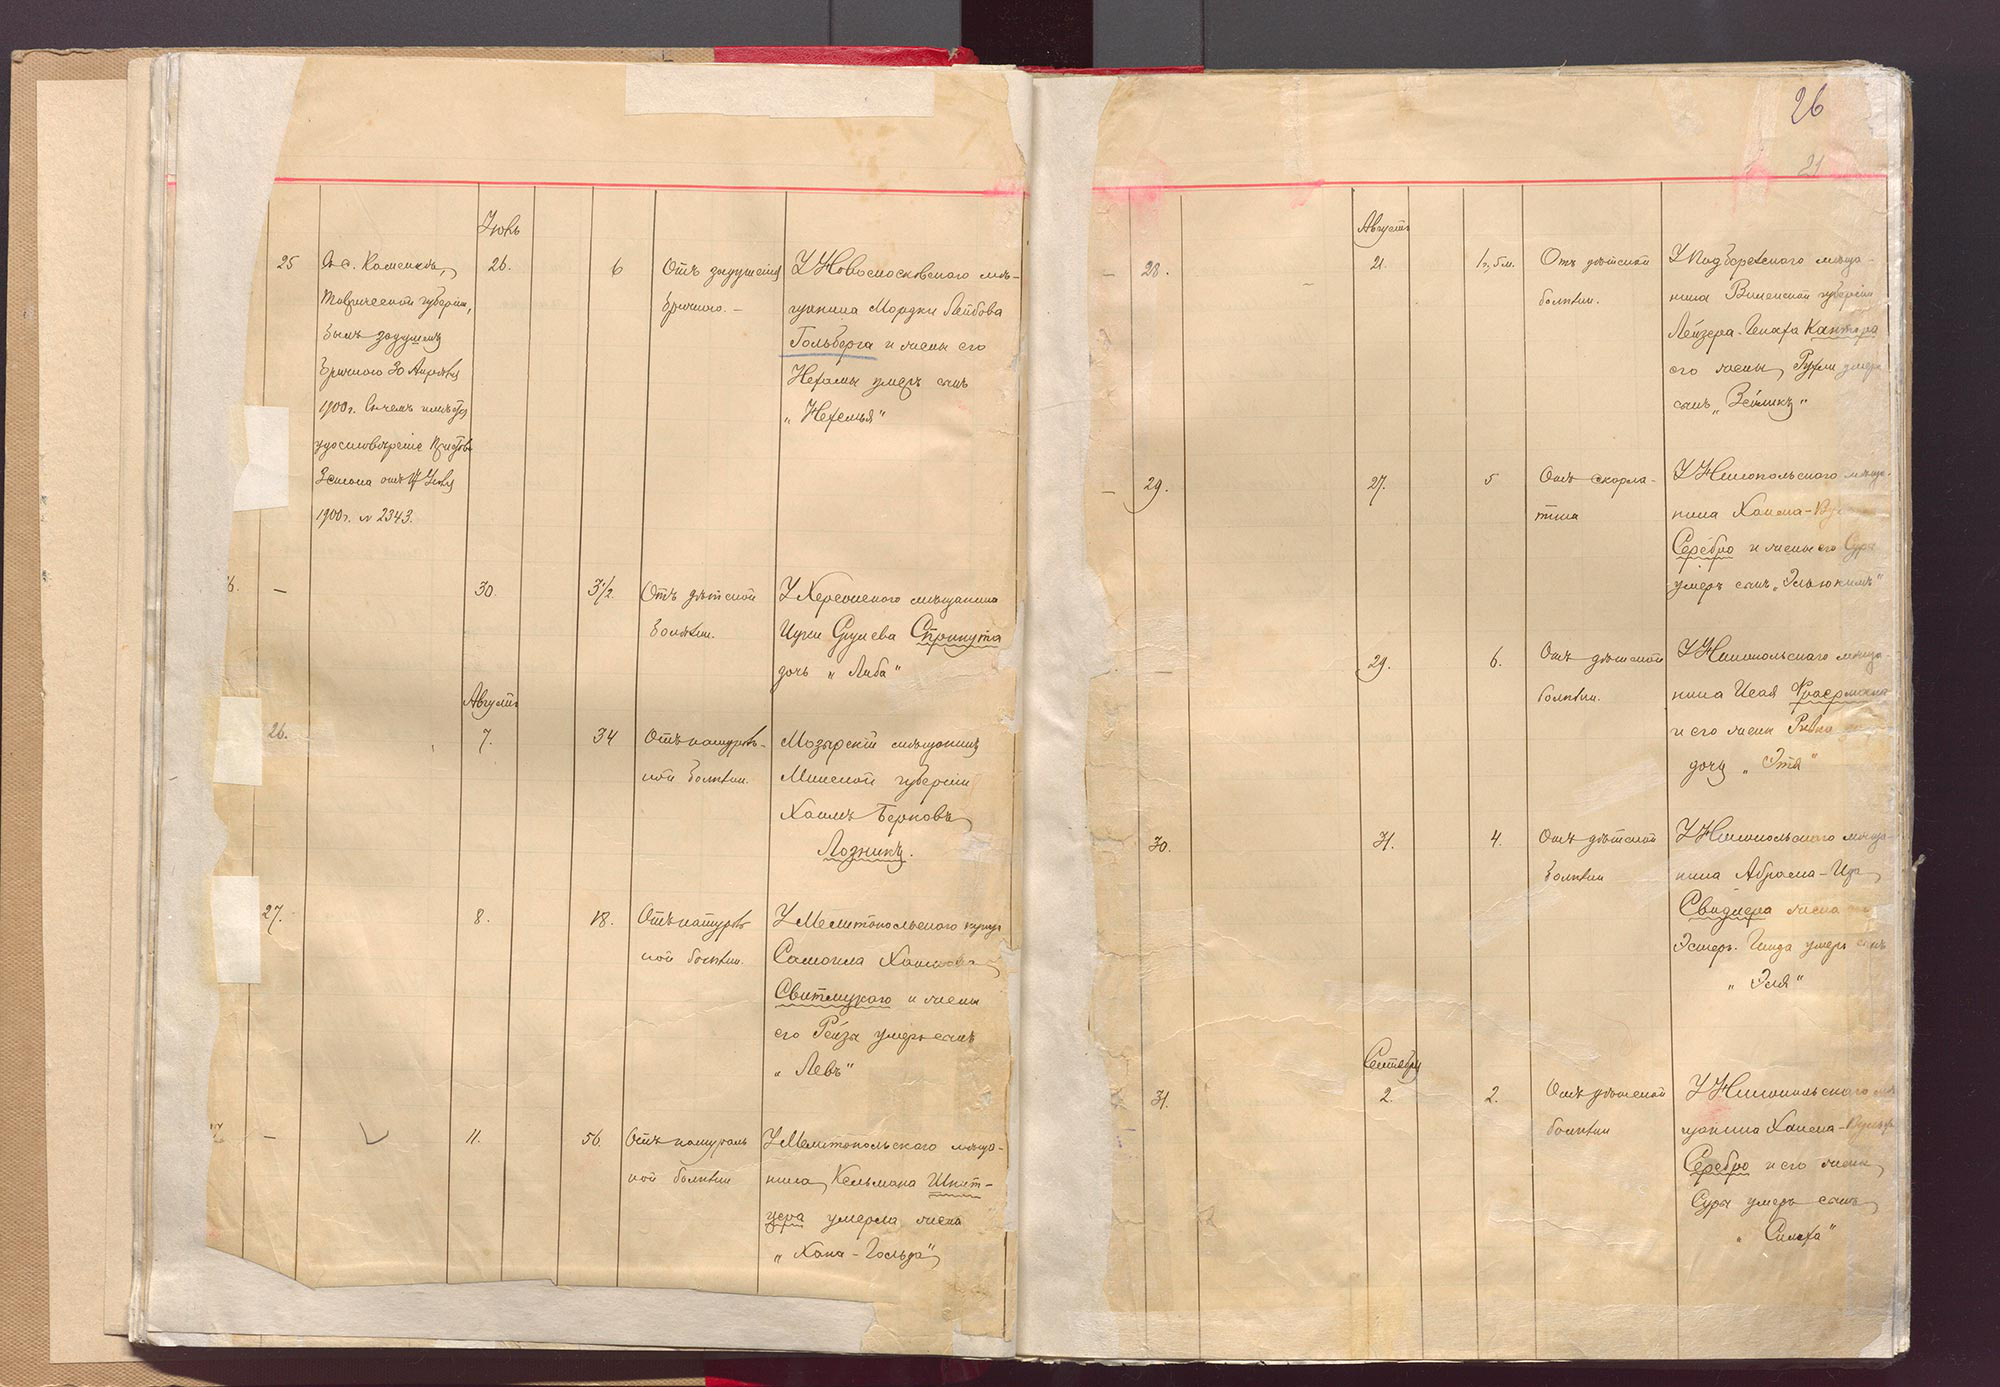 26
21
Іюнь
25
Въ с. Каменкѣ,
Таврической губерніи,
былъ задушенъ
30 Апрѣля
1900г. О чемъ имѣется
удостовѣреніе Пристава
2 стана отъ Іюня
1900г. № 2343.
26.
6
Отъ задушенія
У Новомосковскаго мѣ-
щанина Мордки Лейбова
Гольберга и жены его
Нехамы умеръ сынъ
„Нехемья"
6.
—
30.
3 1/2.
Отъ дѣтской
болѣзни.
У Херсонскаго мѣщанина
дочь „Либа"
Августъ
26.
7.
34
Отъ натураль-
ной болѣзни.
Мозырскій мѣщанинъ
Минской губерніи
Хаимъ Берковъ
Лозникъ.
27.
8.
18.
Отъ натураль
ной болѣзни.
У Мелитопольскаго купца
Самоила Хаимова
и жены
его Рейзы умеръ сынъ
„Левъ"
—
11.
56.
Отъ натураль
ной болѣзни
У Мелитопольскаго мѣща-
нина Кельмана Шкет-
цера умерла жена
„Хана-Гольда"
Августъ
—
28.
21.
1г. 5м.
Отъ дѣтской
болѣзни.
У Подберезскаго мѣща-
нина Виленской губерніи
Лейзера-Генаха Кантора
его жены Руфли умеръ
сынъ „Зеликъ"
—
29.
27.
5
Отъ скарла-
тина
У Никопольскаго мѣща-
нина Хаима-
Серебро и жены его Суры
умеръ сынъ „Эльюкимъ"
—
29.
6.
Отъ дѣтской
болѣзни.
У Никопольскаго мѣща-
нина Исая
и его жены
дочь „Этя"
30.
31.
4.
Отъ дѣтской
болѣзни
У Никопольскаго мѣща-
нина Абрама-Ица
жена его
Эстеръ-Гинда умеръ сынъ
„Эля"
Сентябрь
31.
2.
2.
Отъ дѣтской
болѣзни
У Никопольскаго мѣ
щанина Хаима-Вульфа
Серебро и его жены
Суры умеръ сынъ
„Симха"